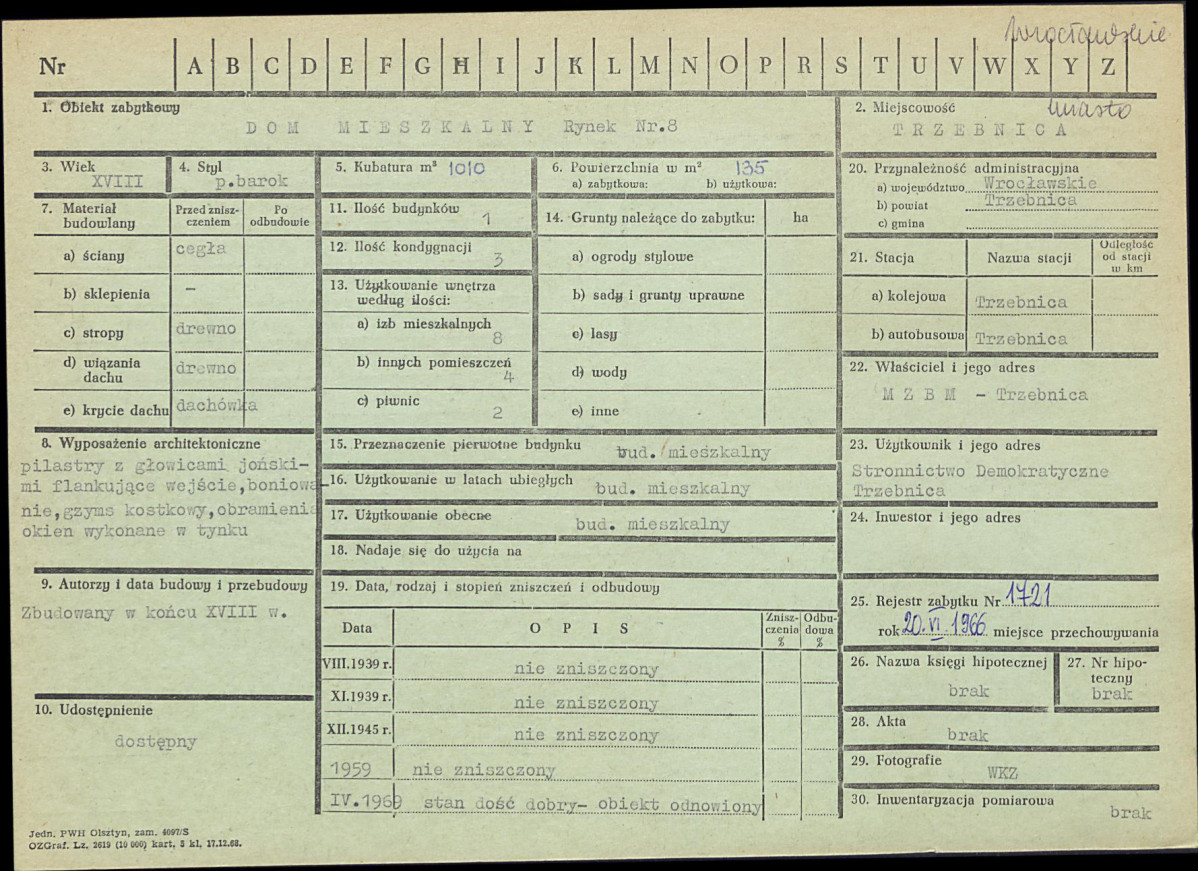 wrocławskie
Nr A B C D E F G H I J K L M N O P R S T U V W X Y Z
1. Obiekt zabytkowy
DOM MIESZKALNY Rynek Nr.8
2. Miejscowość miasto
TRZEBNICA
3. Wiek
XVIII
4. Styl
p.barok
5. Kubatura m³ 1010
6. Powierzchnia w m² 135
a) zabytkowa: b) użytkowa:
7. Materiał budowlany
Przed zniszczeniem
Po odbudowie
a) ściany cegła
b) sklepienia –
c) stropy drewno
d) wiązania dachu drewno
e) krycie dachu dachówka
8. Wyposażenie architektoniczne
pilastry z głowicami joński-
mi flankujące wejście,boniowa-
nie,gzyms kostkowy,obramienia
okien wykonane w tynku
9. Autorzy i data budowy i przebudowy
Zbudowany w końcu XVIII w.
10. Udostępnienie
dostępny
11. Ilość budynków 1
12. Ilość kondygnacji 3
13. Użytkowanie wnętrza
według ilości:
a) izb mieszkalnych 8
b) innych pomieszczeń 4
c) piwnic 2
14. Grunty należące do zabytku: ha
a) ogrody stylowe
b) sady i grunty uprawne
c) lasy
d) wody
e) inne
15. Przeznaczenie pierwotne budynku bud. mieszkalny
16. Użytkowanie w latach ubiegłych bud. mieszkalny
17. Użytkowanie obecne bud. mieszkalny
18. Nadaje się do użycia na
19. Data, rodzaj i stopień zniszczeń i odbudowy
Data OPIS Zniszczenia % Odbudowa %
VIII.1939 r. nie zniszczony
XI.1939 r. nie zniszczony
XII.1945 r. nie zniszczony
1959 nie zniszczony
IV.1969 stan dość dobry- obiekt odnowiony
20. Przynależność administracyjna
a) województwo Wrocławskie
b) powiat Trzebnica
c) gmina
21. Stacja Nazwa stacji Odległość od stacji w km
a) kolejowa Trzebnica
b) autobusowa Trzebnica
22. Właściciel i jego adres
MZBM - Trzebnica
23. Użytkownik i jego adres
Stronnictwo Demokratyczne
Trzebnica
24. Inwestor i jego adres
25. Rejestr zabytku Nr 1721
rok 20.VI 1966 miejsce przechowywania
26. Nazwa księgi hipotecznej
brak
27. Nr hipoteczny
brak
28. Akta
brak
29. Fotografie
WKZ
30. Inwentaryzacja pomiarowa
brak
Jedn. PWH Olsztyn, zam. 4097/S
OZGraf. Lz. 2619 (10 000) kart. 5 kl. 17.12.68.